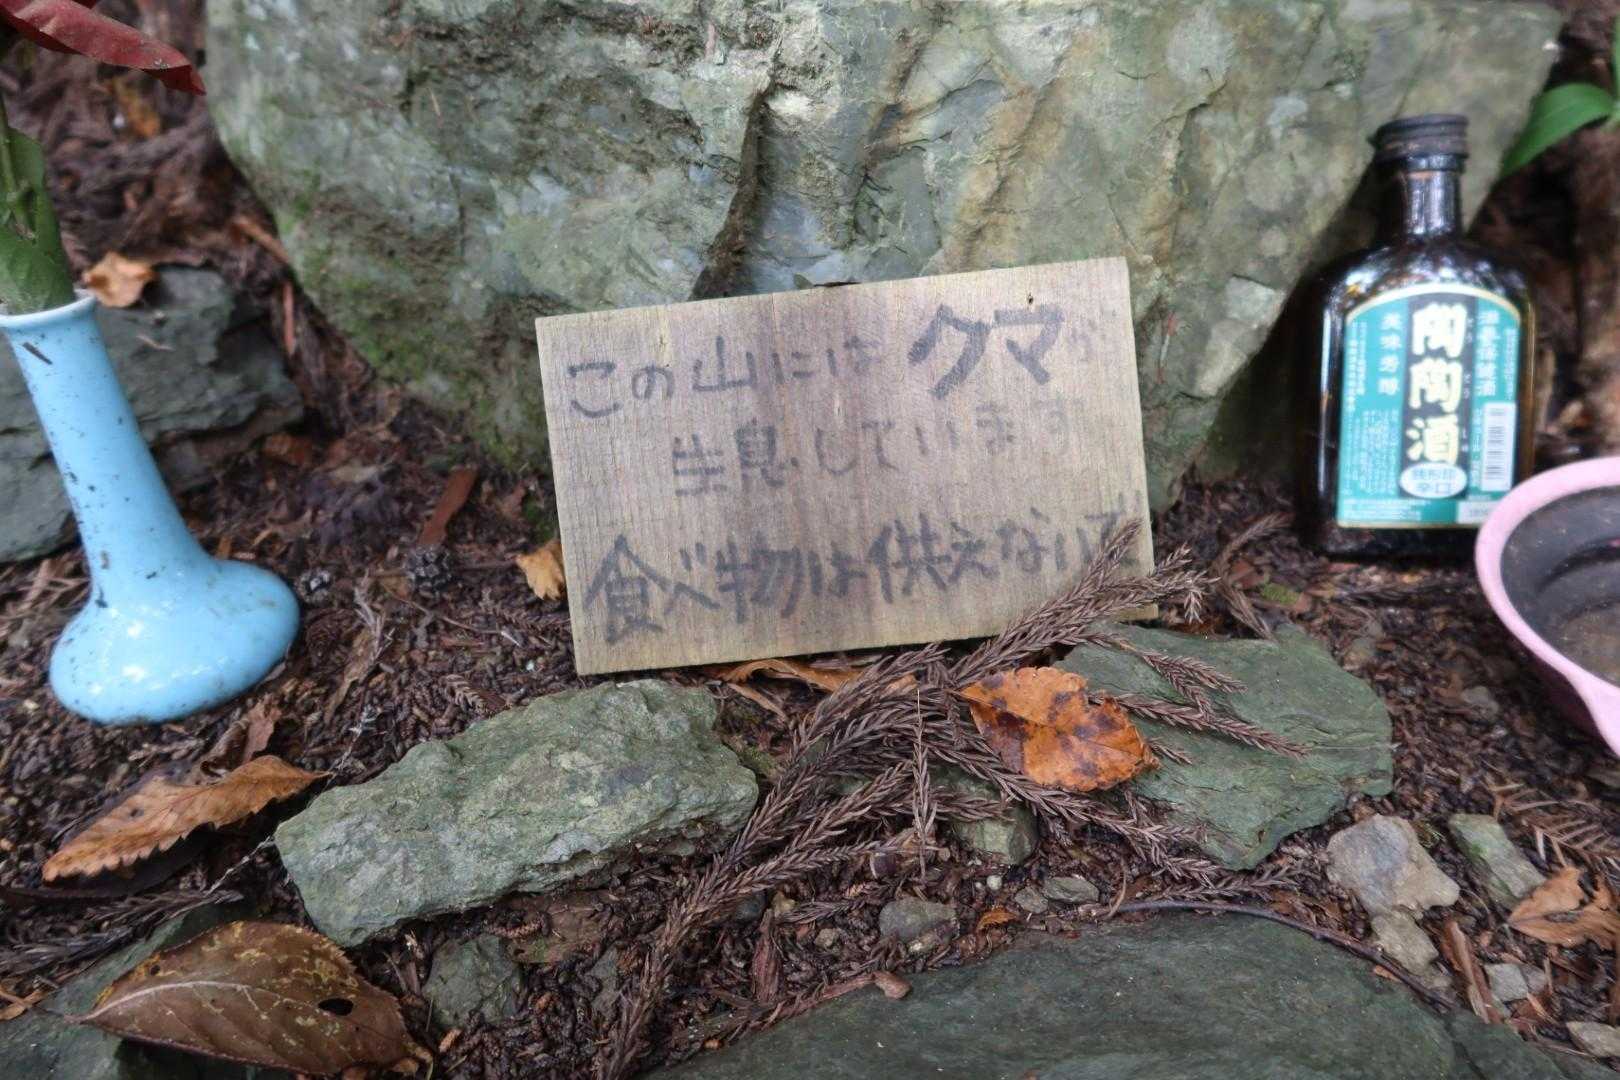 この山にはクマが
生息しています
食べ物は供えないで
滋養強壮酒
陶陶酒
美味芳醇
銭形印
辛口